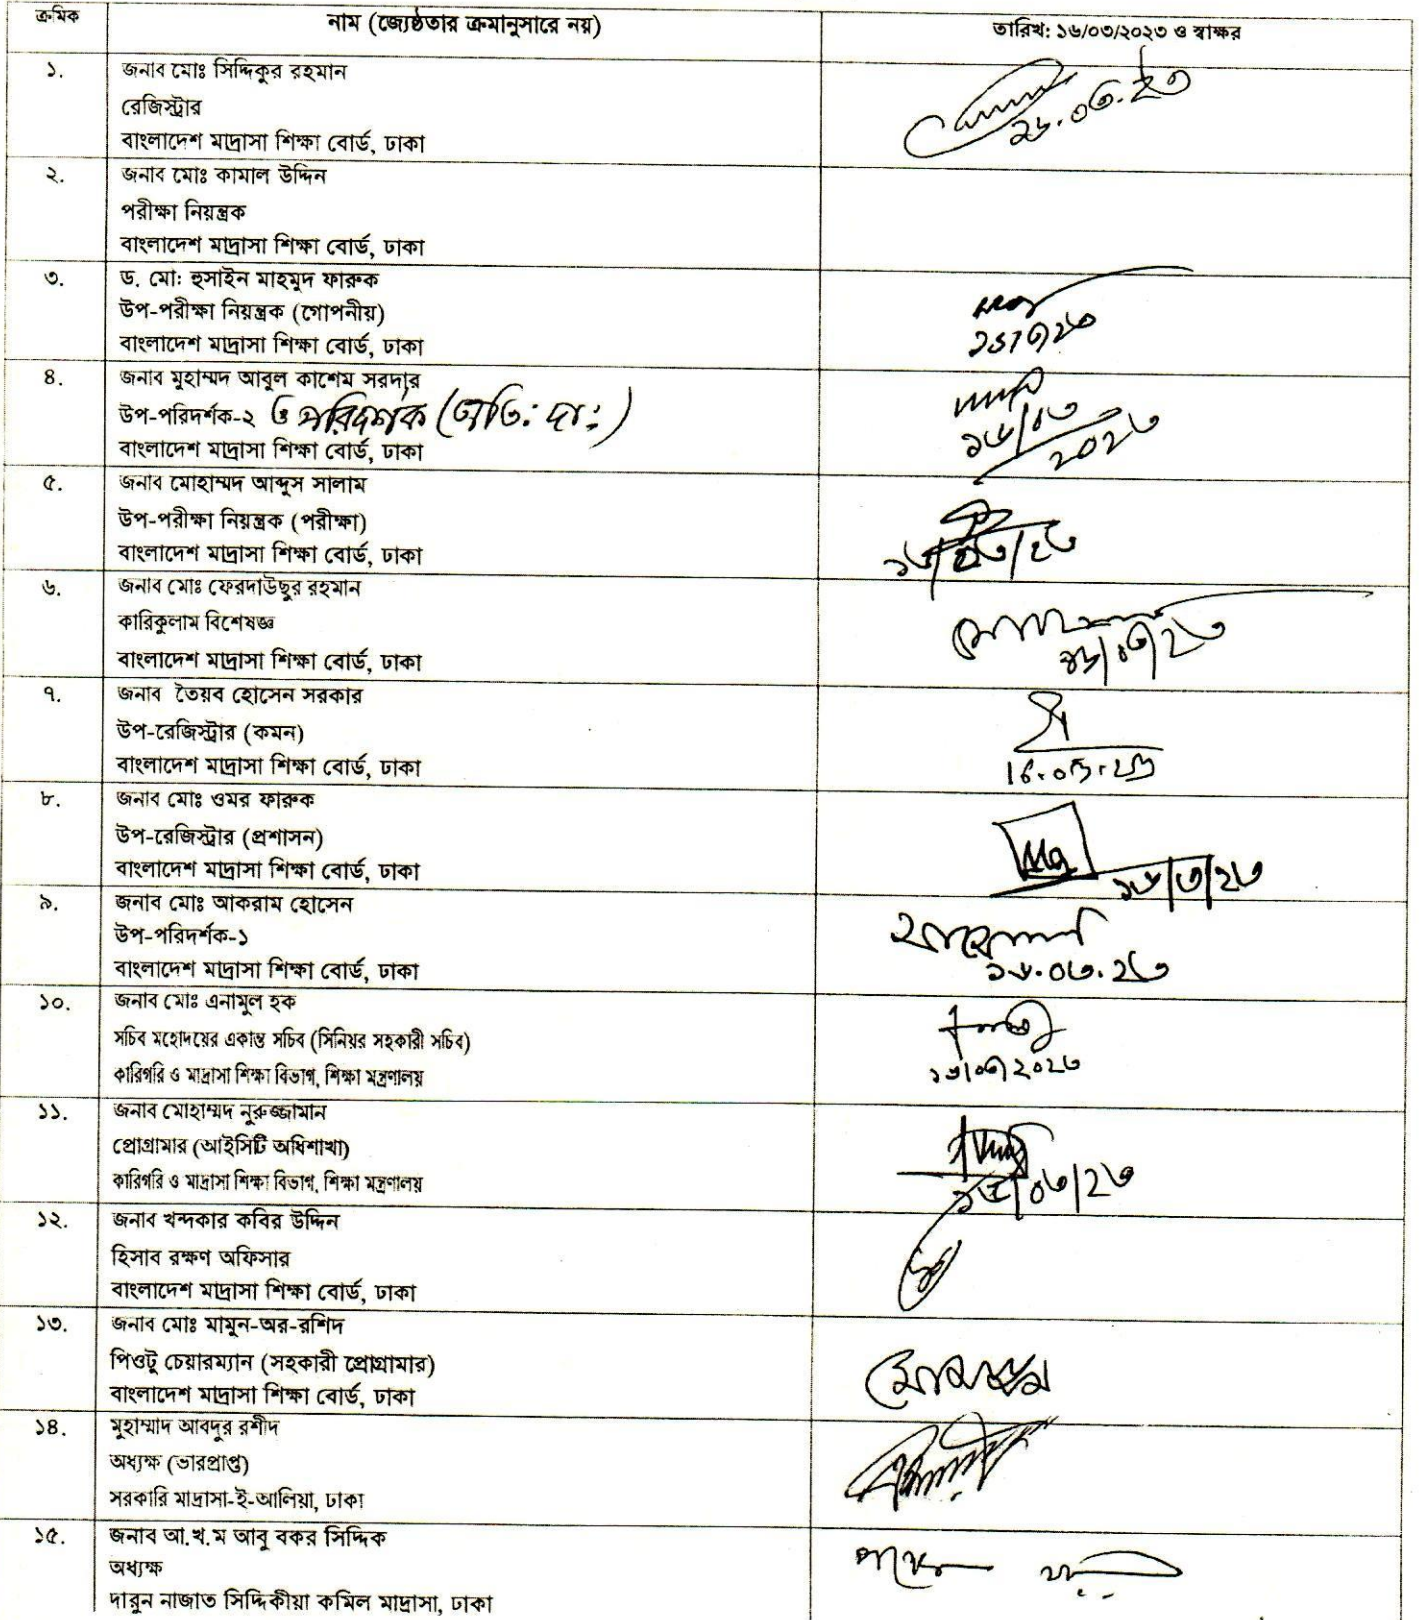 ক্রমিক নাম (জ্যেষ্ঠতার ক্রমানুসারে নয়) তারিখ: ১৬/০৩/২০২৩ ও স্বাক্ষর
১. জনাব মোঃ সিদ্দিকুর রহমান
রেজিস্ট্রার
বাংলাদেশ মাদ্রাসা শিক্ষা বোর্ড, ঢাকা
১৬.০৩.২৩
২. জনাব মোঃ কামাল উদ্দিন
পরীক্ষা নিয়ন্ত্রক
বাংলাদেশ মাদ্রাসা শিক্ষা বোর্ড, ঢাকা
৩. ড. মো: হুসাইন মাহমুদ ফারুক
উপ-পরীক্ষা নিয়ন্ত্রক (গোপনীয়)
বাংলাদেশ মাদ্রাসা শিক্ষা বোর্ড, ঢাকা
৪. জনাব মুহাম্মদ আবুল কাশেম সরদার
উপ-পরিদর্শক-২ ও পরিদর্শক (অতি: দা:)
বাংলাদেশ মাদ্রাসা শিক্ষা বোর্ড, ঢাকা
১৬/০৩
২০২৩
৫. জনাব মোহাম্মদ আব্দুস সালাম
উপ-পরীক্ষা নিয়ন্ত্রক (পরীক্ষা)
বাংলাদেশ মাদ্রাসা শিক্ষা বোর্ড, ঢাকা
১৬/০৩/২৩
৬. জনাব মোঃ ফেরদাউছুর রহমান
কারিকুলাম বিশেষজ্ঞ
বাংলাদেশ মাদ্রাসা শিক্ষা বোর্ড, ঢাকা
১৬/০৩/২৩
৭. জনাব তৈয়ব হোসেন সরকার
উপ-রেজিস্ট্রার (কমন)
বাংলাদেশ মাদ্রাসা শিক্ষা বোর্ড, ঢাকা
16.03.23
৮. জনাব মোঃ ওমর ফারুক
উপ-রেজিস্ট্রার (প্রশাসন)
বাংলাদেশ মাদ্রাসা শিক্ষা বোর্ড, ঢাকা
১৬/৩/২৩
৯. জনাব মোঃ আকরাম হোসেন
উপ-পরিদর্শক-১
বাংলাদেশ মাদ্রাসা শিক্ষা বোর্ড, ঢাকা
১৬.০৩.২৩
১০. জনাব মোঃ এনামুল হক
সচিব মহোদয়ের একান্ত সচিব (সিনিয়র সহকারী সচিব)
কারিগরি ও মাদ্রাসা শিক্ষা বিভাগ, শিক্ষা মন্ত্রণালয়
১৬/০৩/২০২৩
১১. জনাব মোহাম্মদ নুরুজ্জামান
প্রোগ্রামার (আইসিটি অধিশাখা)
কারিগরি ও মাদ্রাসা শিক্ষা বিভাগ, শিক্ষা মন্ত্রণালয়
১৬/০৩/২৩
১২. জনাব খন্দকার কবির উদ্দিন
হিসাব রক্ষণ অফিসার
বাংলাদেশ মাদ্রাসা শিক্ষা বোর্ড, ঢাকা
১৩. জনাব মোঃ মামুন-অর-রশিদ
পিওটু চেয়ারম্যান (সহকারী প্রোগ্রামার)
বাংলাদেশ মাদ্রাসা শিক্ষা বোর্ড, ঢাকা
১৪. মুহাম্মাদ আবদুর রশীদ
অধ্যক্ষ (ভারপ্রাপ্ত)
সরকারি মাদ্রাসা-ই-আলিয়া, ঢাকা
১৫. জনাব আ.খ.ম আবু বকর সিদ্দিক
অধ্যক্ষ
দারুন নাজাত সিদ্দিকীয়া কমিল মাদ্রাসা, ঢাকা